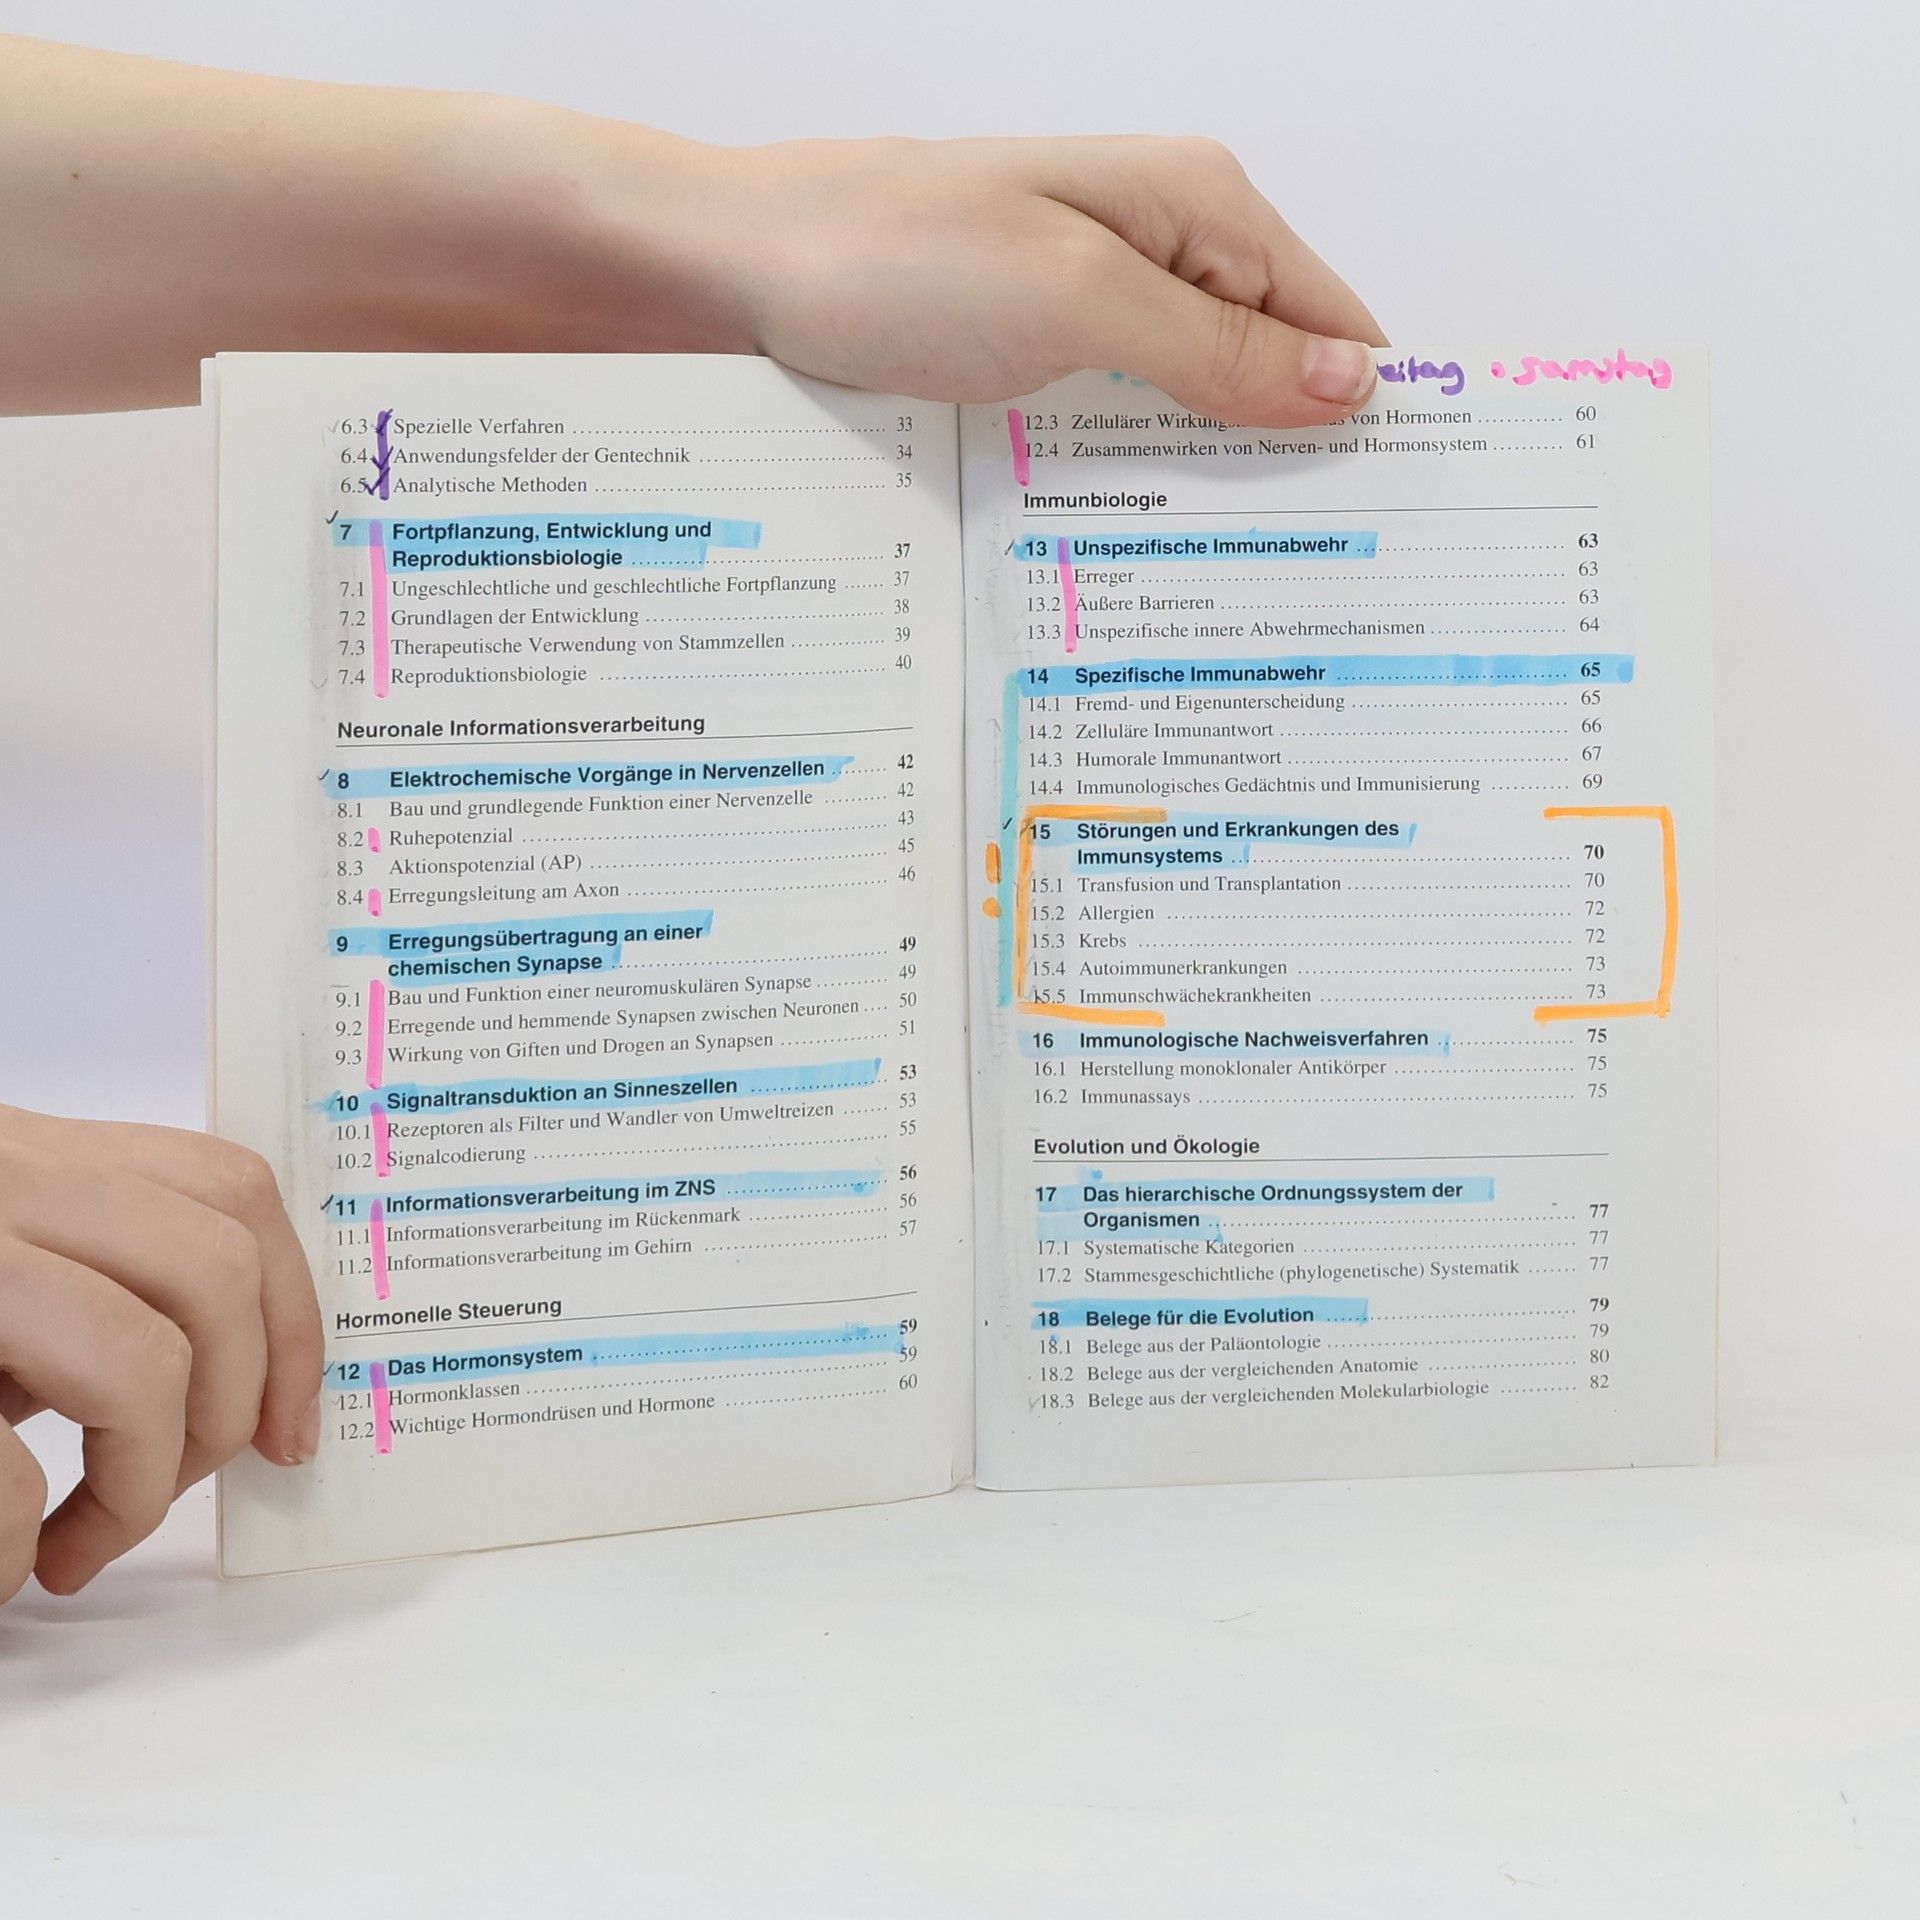 6.3 Spezielle Verfahren 33
6.4 Anwendungsfelder der Gentechnik 34
6.5 Analytische Methoden 35
7 Fortpflanzung, Entwicklung und
Reproduktionsbiologie 37
7.1 Ungeschlechtliche und geschlechtliche Fortpflanzung 37
7.2 Grundlagen der Entwicklung 38
7.3 Therapeutische Verwendung von Stammzellen 39
7.4 Reproduktionsbiologie 40
Neuronale Informationsverarbeitung
8 Elektrochemische Vorgänge in Nervenzellen 42
8.1 Bau und grundlegende Funktion einer Nervenzelle 42
8.2 Ruhepotenzial 43
8.3 Aktionspotenzial (AP) 45
8.4 Erregungsleitung am Axon 46
9 Erregungsübertragung an einer
chemischen Synapse 49
9.1 Bau und Funktion einer neuromuskulären Synapse 49
9.2 Erregende und hemmende Synapsen zwischen Neuronen 50
9.3 Wirkung von Giften und Drogen an Synapsen 51
10 Signaltransduktion an Sinneszellen 53
10.1 Rezeptoren als Filter und Wandler von Umweltreizen 53
10.2 Signalcodierung 55
11 Informationsverarbeitung im ZNS 56
11.1 Informationsverarbeitung im Rückenmark 56
11.2 Informationsverarbeitung im Gehirn 57
Hormonelle Steuerung
12 Das Hormonsystem 59
12.1 Hormonklassen 59
12.2 Wichtige Hormondrüsen und Hormone 60
eitag • Samstag
12.3 Zellulärer von Hormonen 60
12.4 Zusammenwirken von Nerven- und Hormonsystem 61
Immunbiologie
13 Unspezifische Immunabwehr 63
13.1 Erreger 63
13.2 Äußere Barrieren 63
13.3 Unspezifische innere Abwehrmechanismen 64
14 Spezifische Immunabwehr 65
14.1 Fremd- und Eigenunterscheidung 65
14.2 Zelluläre Immunantwort 66
14.3 Humorale Immunantwort 67
14.4 Immunologisches Gedächtnis und Immunisierung 69
15 Störungen und Erkrankungen des
Immunsystems 70
15.1 Transfusion und Transplantation 70
15.2 Allergien 72
15.3 Krebs 72
15.4 Autoimmunerkrankungen 73
15.5 Immunschwächekrankheiten 73
16 Immunologische Nachweisverfahren 75
16.1 Herstellung monoklonaler Antikörper 75
16.2 Immunassays 75
Evolution und Ökologie
17 Das hierarchische Ordnungssystem der
Organismen 77
17.1 Systematische Kategorien 77
17.2 Stammesgeschichtliche (phylogenetische) Systematik 77
18 Belege für die Evolution 79
18.1 Belege aus der Paläontologie 79
18.2 Belege aus der vergleichenden Anatomie 80
18.3 Belege aus der vergleichenden Molekularbiologie 82